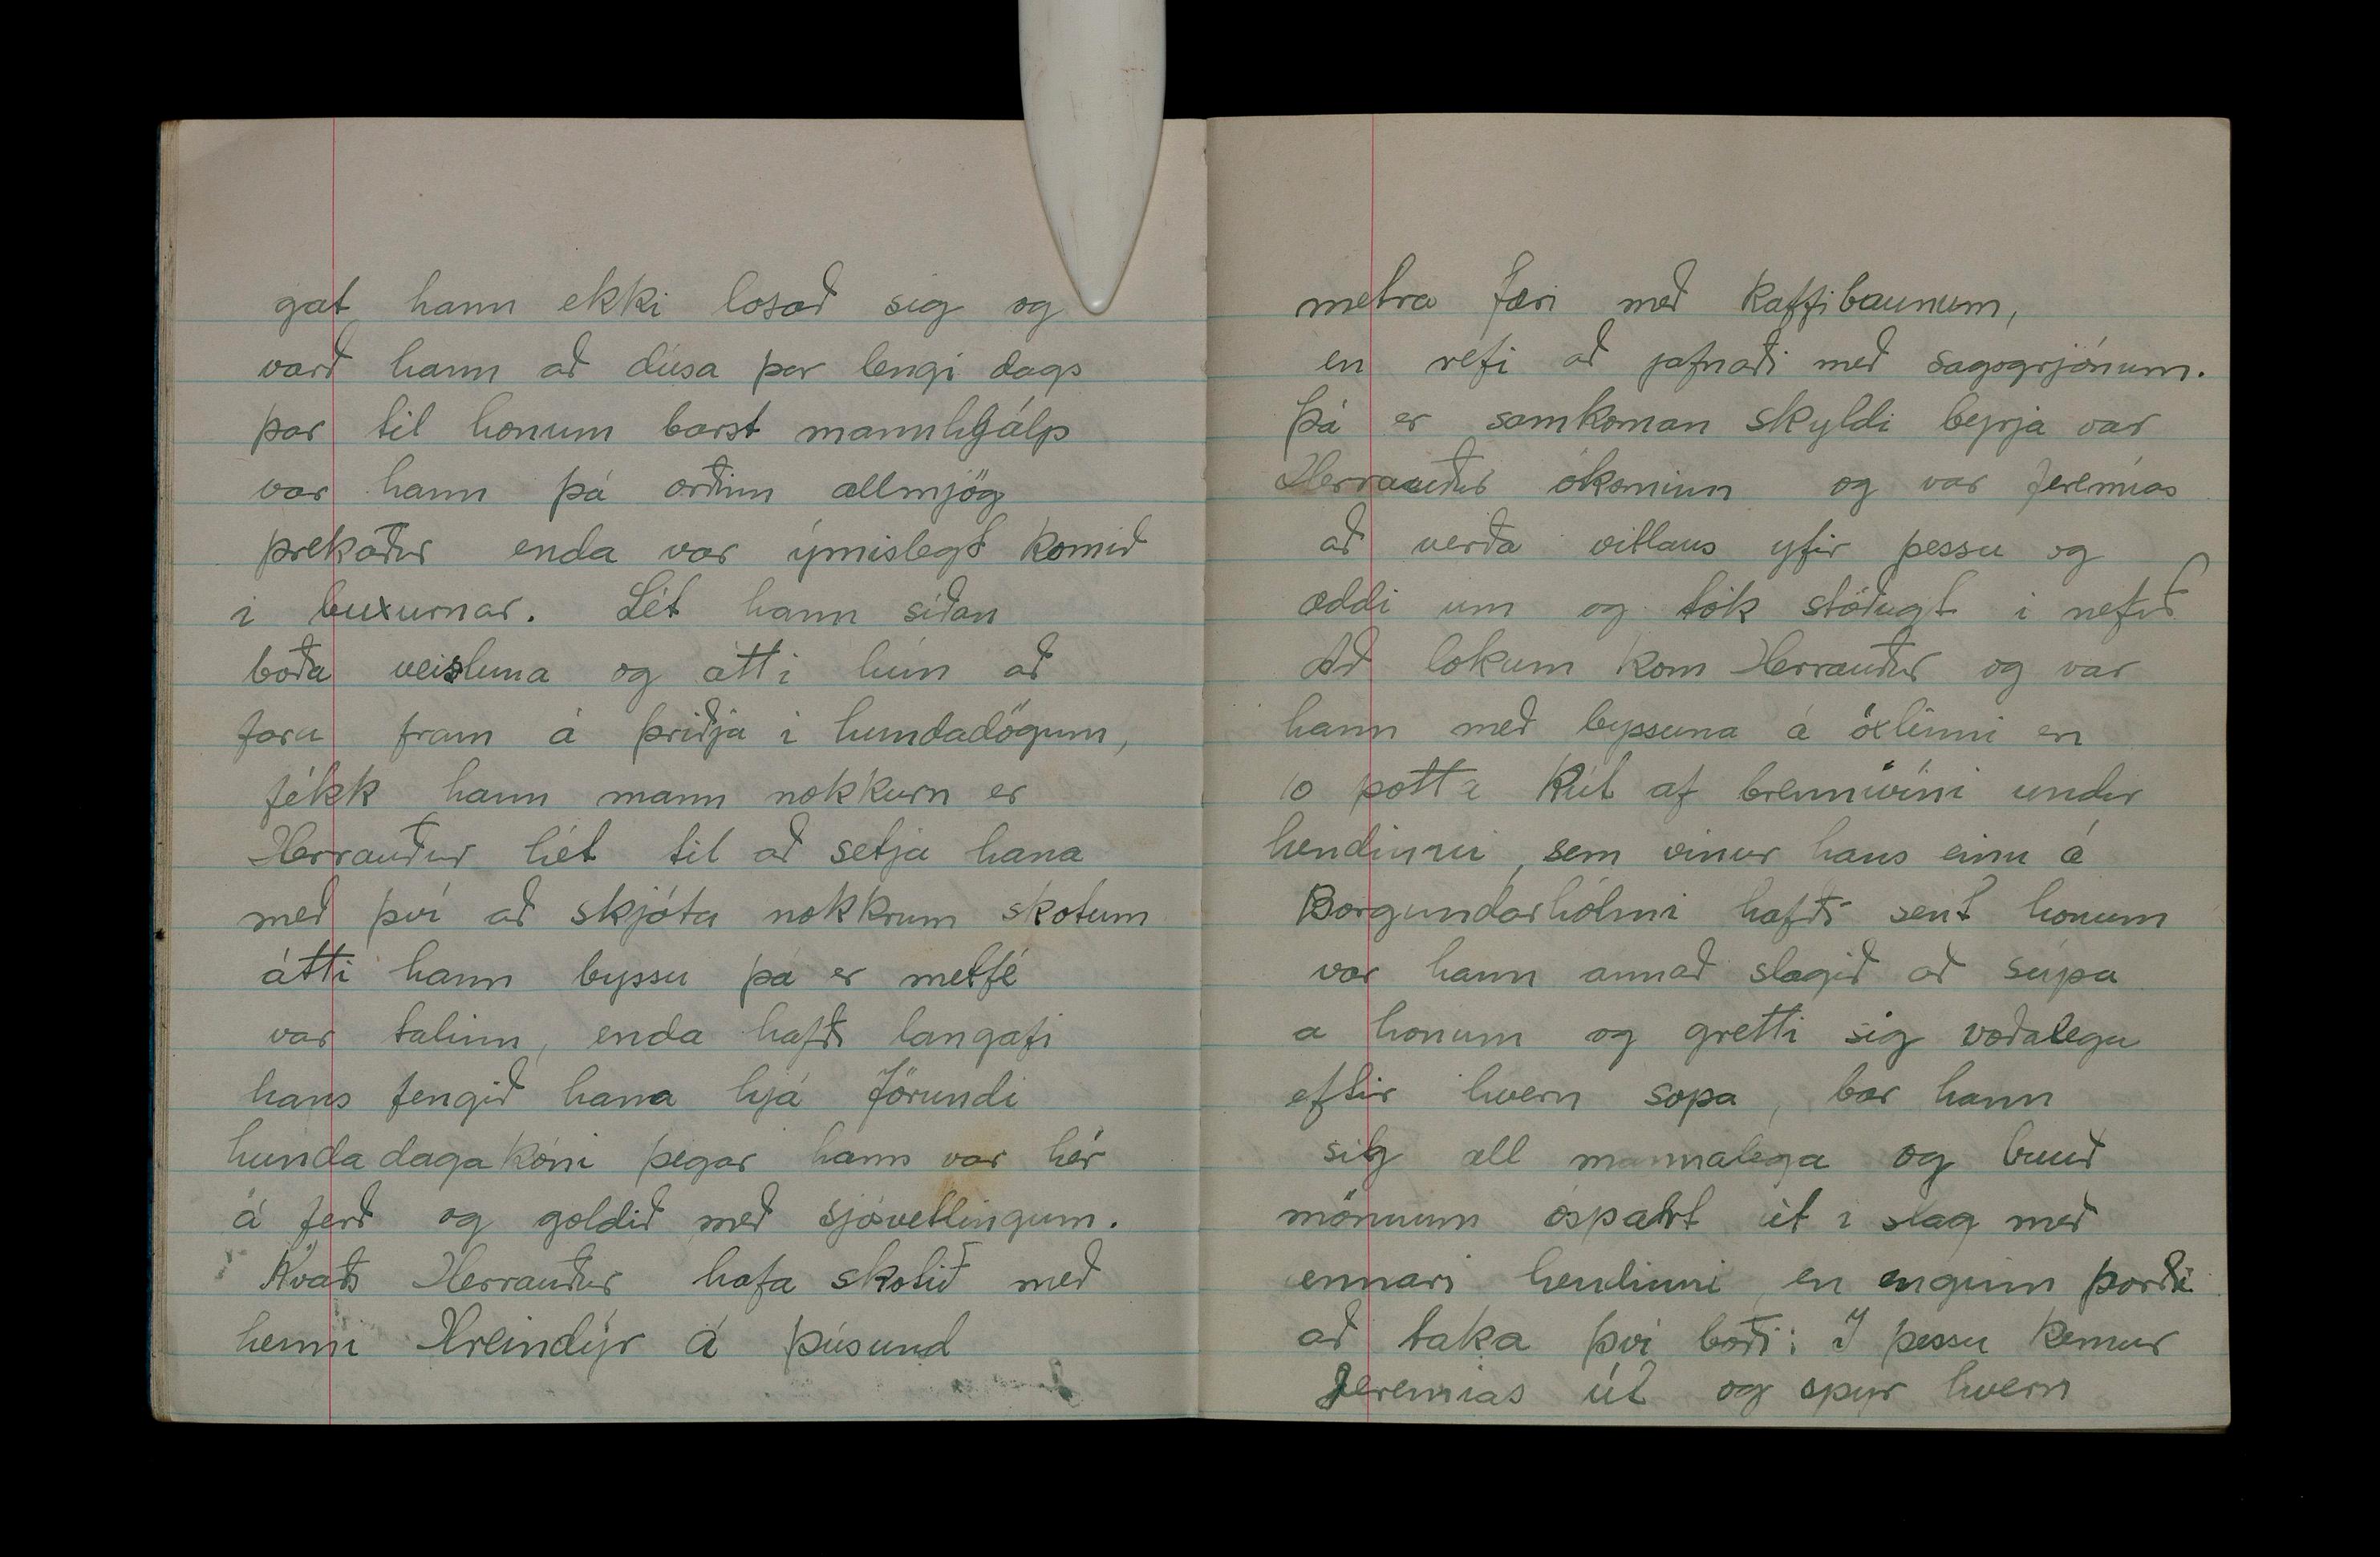 gat hann ekki losað sig og
varð hann að dúsa þar lengi dags
þar til honum barst mannhjálp
var hann þá orðinn allmjög
þrekaður enda var ýmislegt komið
i buxurnar. Lét hann síðan
boða veisluna og átti hún að
fara fram á þriðja i hundadögum,
fékk hann mann nokkurn er
Herrauður hét til að setja hana
með því að skjóta nokkrum skotum
átti hann byssu þá er metfé
var talinn, enda hafði langafi
hans fengið hana hjá Jörundi
hundadagakóni þegar hann var hér
á ferð og goldið með sjóvetlingum.
Kvaðs Herrauður hafa skotið með
henni Hreindýr á þúsund
metra færi með kaffibaunum,
en refi að jafnaði með sagogrjónum.
Þá er samkoman skyldi byrja var
Herrauður ókominn og var Jeremías
að verða vitlaus yfir þessu og
æddi um og tók stöðugt i nefið
Að lokum kom Herrauður og var
hann með byssuna á öxlinni en
10 potta kút af brennivíni undir
hendinni, sem vinur hans einn á
Borgundarhólmi hafði sent honum
var hann annað slagið að súpa
a honum og gretti sig voðalega
eftir hvern sopa, bar hann
sig all mannalega og bauð
mönnum óspart út i slag með
annari hendinni, en enginn þorði
að taka því boði: I þessu kemur
Jeremias út og spyr hvern